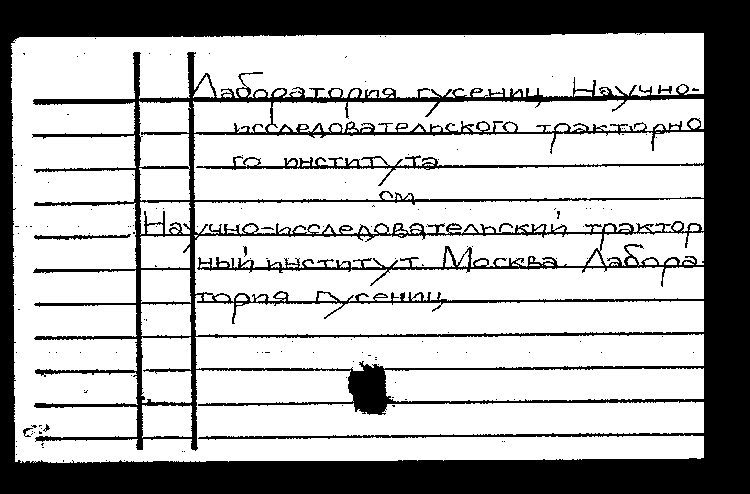 Лаборатория гусениц Научно-
исследовательского тракторно
го института
см
Научно-исследовательский трактор
ный институт. Москва. Лабора-
тория гусениц